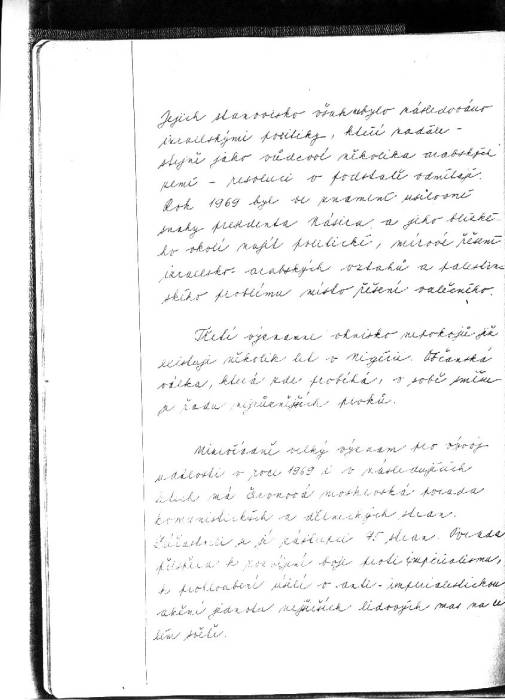 Jejich stanovisko však nebylo následováno
izraelskými politiky, kteří nadále -
stejně jako vůdcové několika arabských
zemí - resoluci v podstatě odmítají.
Rok 1969 byl ve znamení usilovné
snahy prezidenta Násira a jeho blízké-
ho okolí najít politické, mírové řešení
izraelsko-arabských vztahů a palestin-
ského problému místo řešení válečného.
Třetí významné ohnisko nepokojů již
existuje několik let v Nigérii. Občanská
válka, která zde probíhá, v sobě
řadu nejrůznějších prvků.
Mimořádně velký význam pro vývoj
událostí v roce 1969 i v následujících
létech má červnová moskevská porada
komunistických a dělnických stran.
Zúčastnili se jí zástupci 75 stran. Porada
přispěla k rozvíjení boje proti imperialismu,
k prohloubení úsilí o anti-imperialistickou
akční jednotu nejširších lidových mas na ce
lém světě.